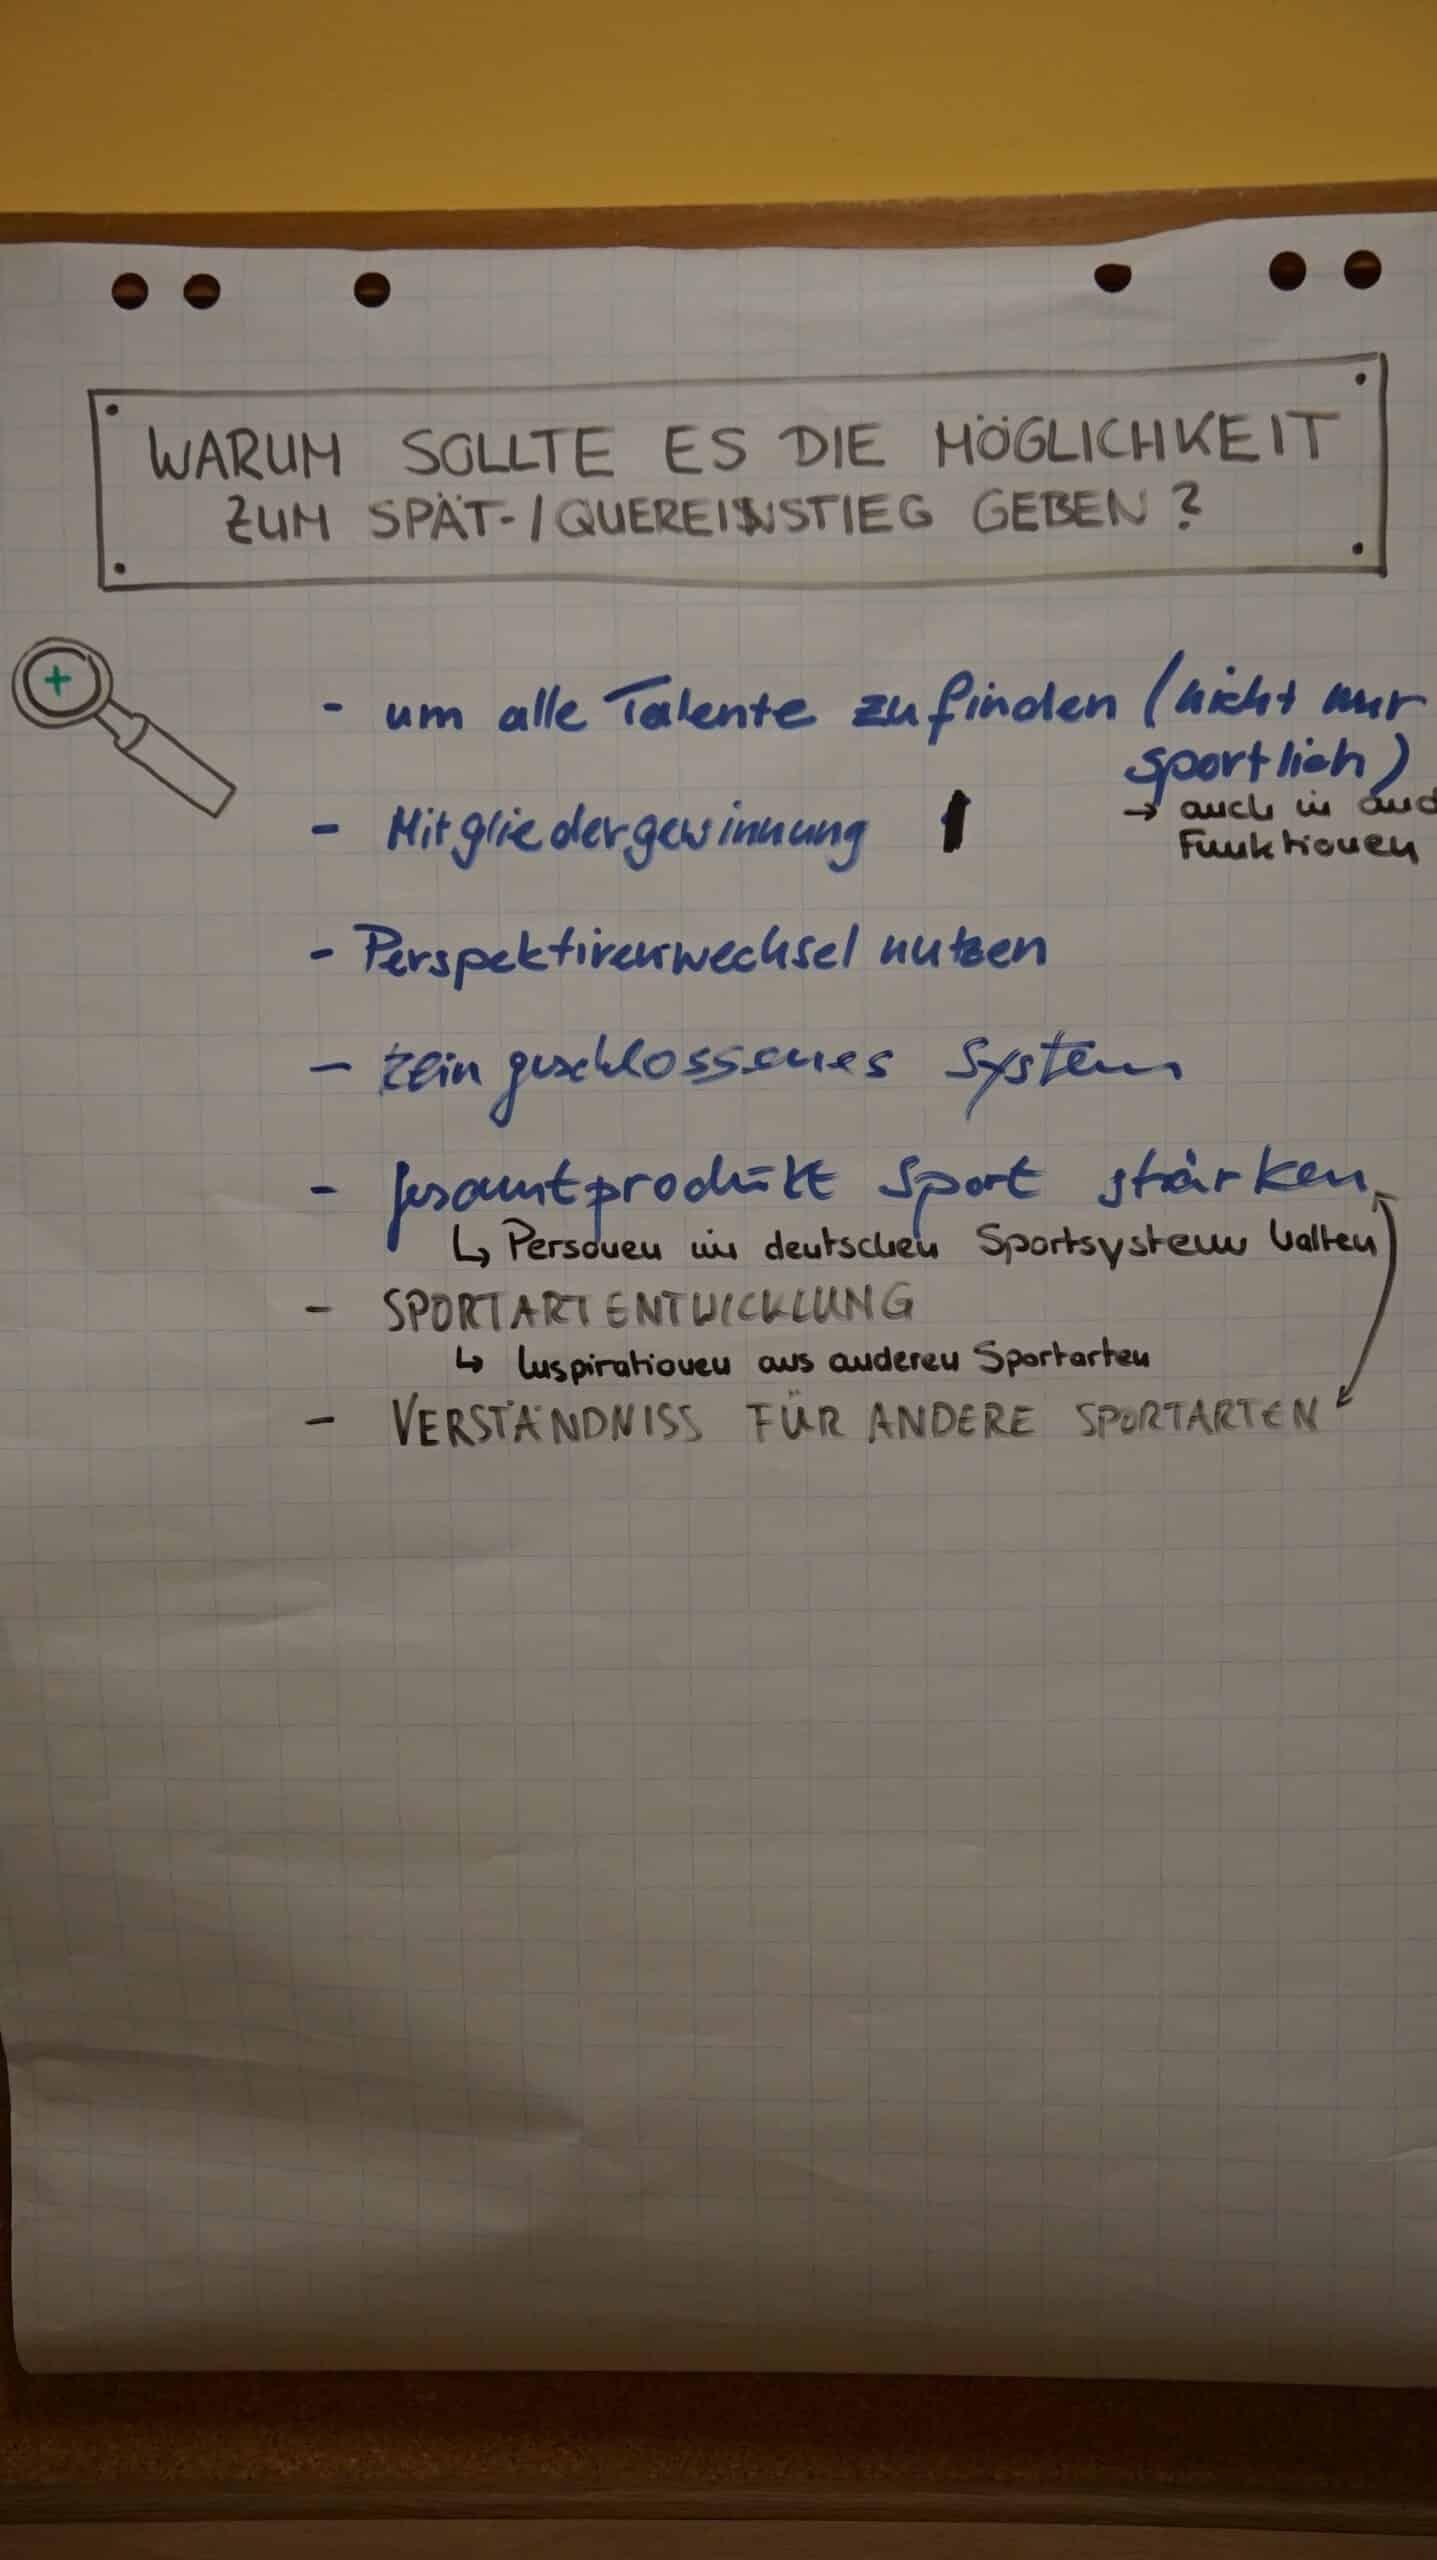 WARUM SOLLTE ES DIE MÖGLICHKEIT
ZUM SPÄT-/QUEREINSTIEG GEBEN?
- um alle Talente zu finden (nicht nur
sportlich)
→ auch in and
Funktionen
- Mitgliedergewinnung
- Perspektivenwechsel nutzen
- kein geschlossenes System
- Gesamtprodukt Sport stärken
↳ Personen im deutschen Sportsystem halten
- SPORTARTENTWICKLUNG
↳ Inspirationen aus anderen Sportarten
- VERSTÄNDNISS FÜR ANDERE SPORTARTEN